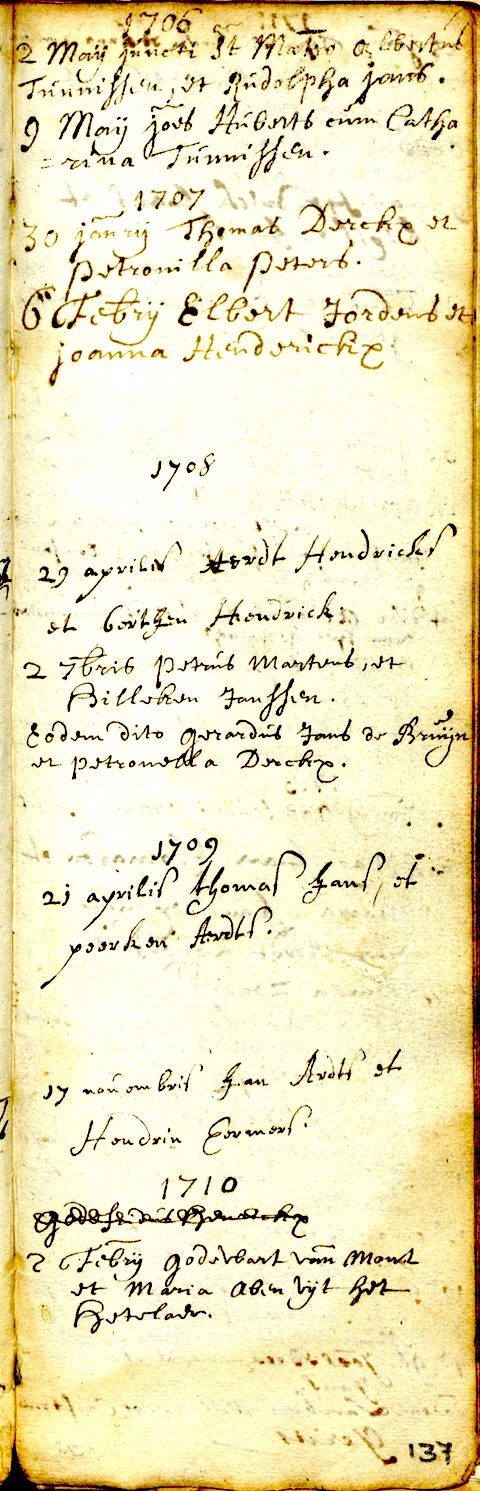 1706
2 May juncti st Matrio Olbertus
Tunnissen, et Rudolpha Jans.
9 May Joes Huberts cum Catha
=rina Tunnissen.
1707
30 janrij Thomas Derckx et
Petronilla Peters.
6 Febrij Elbert Jordens et
joanna Henderickx
1708
29 aprilis Aerdt Hendricks
et berthen Hendrick
2 7bris Petrus Martens, et
Hilleken Janssen.
Eodem dito gerardus Jans de Bruyn
et petronella Derckx.
1709
21 aprilis thomas Jans, et
peerken Aerdts.
17 nouembris Jan Ardts et
Hendrin Eermers.
1710
2 Febrij godevart van Mont
et Maria Aben uijt het
Hetelaer.
137